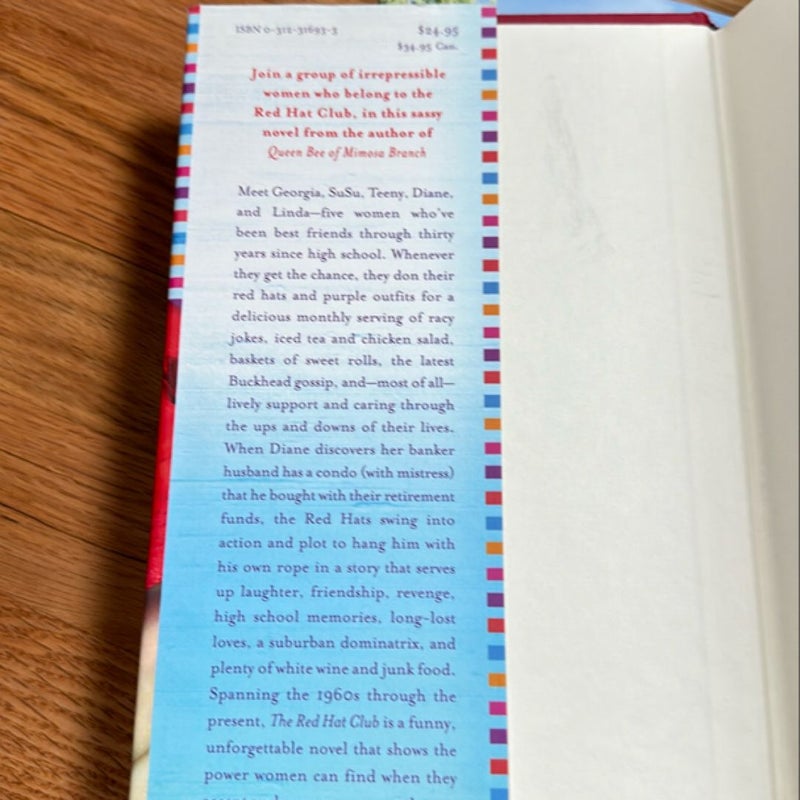 ISBN 0-312-31693-3
$24.95
$34.95 Can.
Join a group of irrepressible
women who belong to the
Red Hat Club, in this sassy
novel from the author of
Queen Bee of Mimosa Branch
Meet Georgia, SuSu, Teeny, Diane,
and Linda—five women who've
been best friends through thirty
years since high school. Whenever
they get the chance, they don their
red hats and purple outfits for a
delicious monthly serving of racy
jokes, iced tea and chicken salad,
baskets of sweet rolls, the latest
Buckhead gossip, and—most of all—
lively support and caring through
the ups and downs of their lives.
When Diane discovers her banker
husband has a condo (with mistress)
that he bought with their retirement
funds, the Red Hats swing into
action and plot to hang him with
his own rope in a story that serves
up laughter, friendship, revenge,
high school memories, long-lost
loves, a suburban dominatrix, and
plenty of white wine and junk food.
Spanning the 1960s through the
present, The Red Hat Club is a funny,
unforgettable novel that shows the
power women can find when they